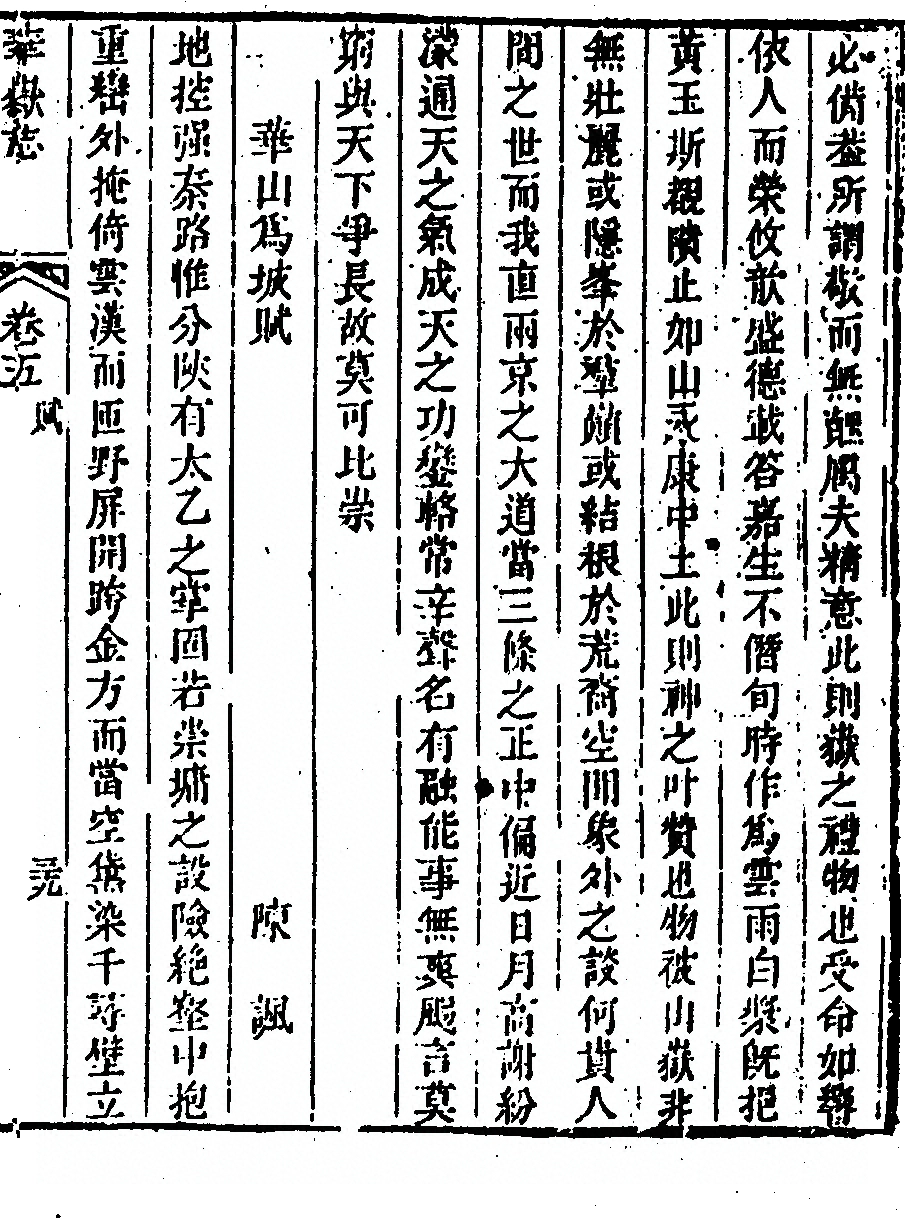 必備蓋所謂敬而無醜馮夫精意此則嶽之禮物也受命如響
依人而榮攸歆盛德載答嘉生不僭旬時作爲雲雨白漿既挹
黃玉斯覩隤止如山永康中土此則神之叶贊也物彼山嶽非
無壯麗或隱峯於羣嶺或結根於荒裔空聞象外之談何貴人
間之世而我直兩京之大道當三條之正中偏近日月高謝紛
濛通天之氣成天之功鑾輅常幸聲名有融能事無爽颺言莫
窮與天下爭長故莫可比崇
華山爲城賦 陳諷
地控強秦路惟分陝有太乙之窂固若崇墉之設險絕壑中抱
重巒外掩倚雲漢而匝野屏開跨金方而當空黛染千尋壁立
華嶽志 卷五 賦 三九